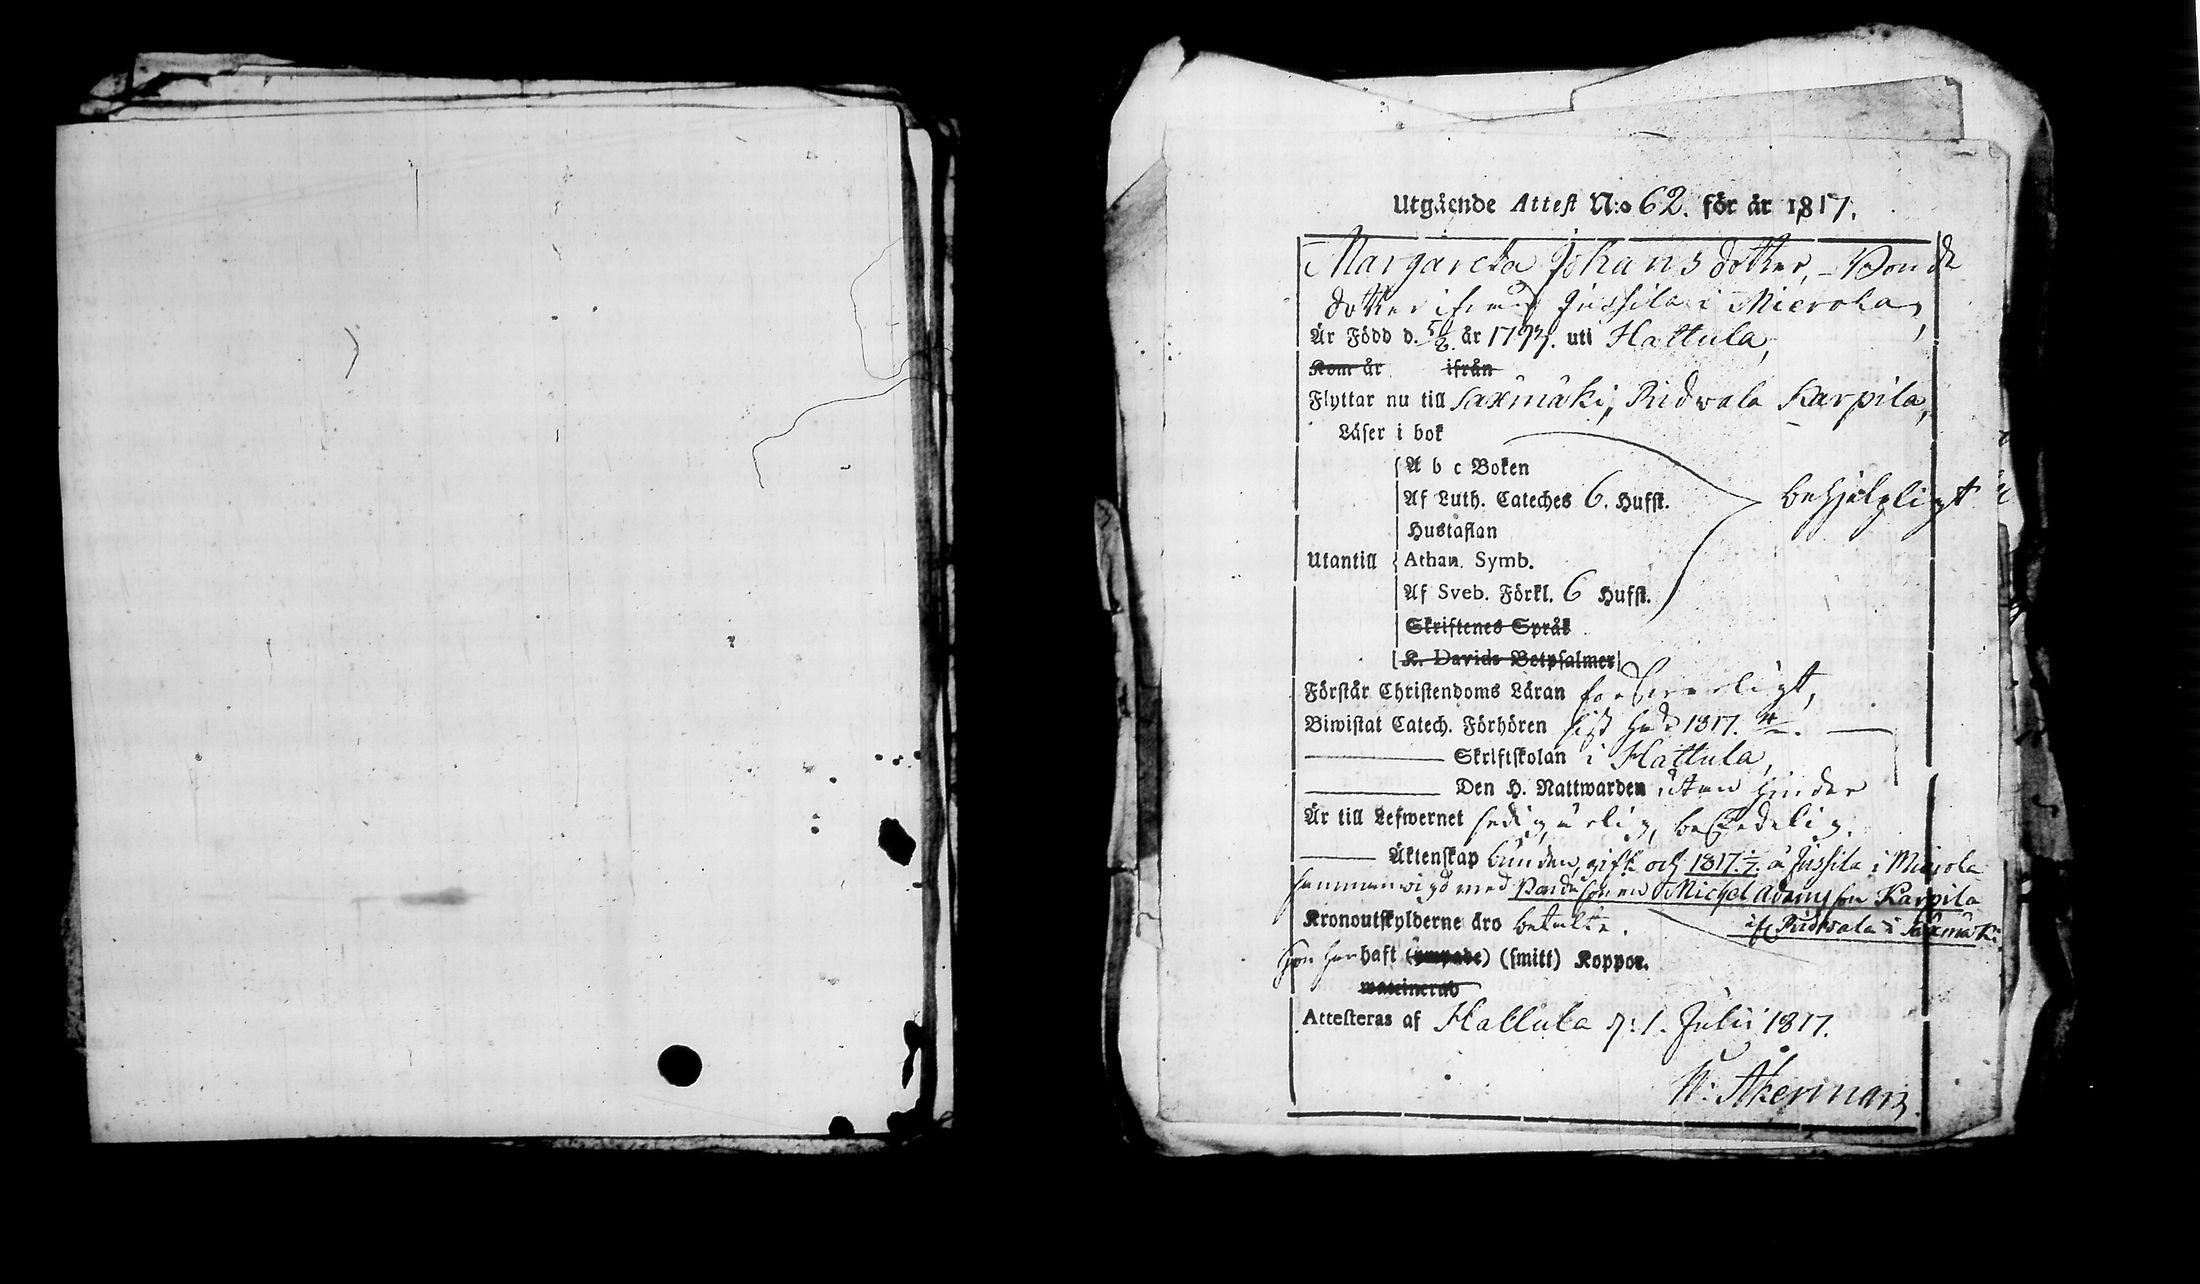 Utgående Attest N:o 62. för år 1817.
Margareta Johansdotter, - Bonde
dotter ifrån Jussila i Mierola,
Är Född d. 5/2 år 1797. uti Hattula,
Kom år ifrån
Flyttar nu till Saxmäki, Ridvala Karpila,
Läser i bok
A b c Boken
Af Luth. Cateches 6. Hufst. behjelpligt
Hustaflan
Utantill Athan. Symb.
Af Sveb. Förkl. 6 Hufst.
Skriftenes Språk
K. Davids Botpsalmer
Förstår Christendoms Läran försvarligt,
Biwistat Catech. Förhören sist här 1817.
Skriftskolan i Hattula,
Den H. Nattwarden utan hinder
Är till Lefwernet sedig, ärlig, beskedelig.
Äktenskap bunden, gift och 1817 1/7. å Jussila i Mierola
sammanvigd med Bondesonen Michel Adamsson Karpila
Kronoutskylderne äro betalte. ifr Ridvala i Saxmäki
Hon har haft (ympade) (smitt) Koppor.
waccinerad
Attesteras af Hattula d: 1. Julii 1817.
W: Åkerman